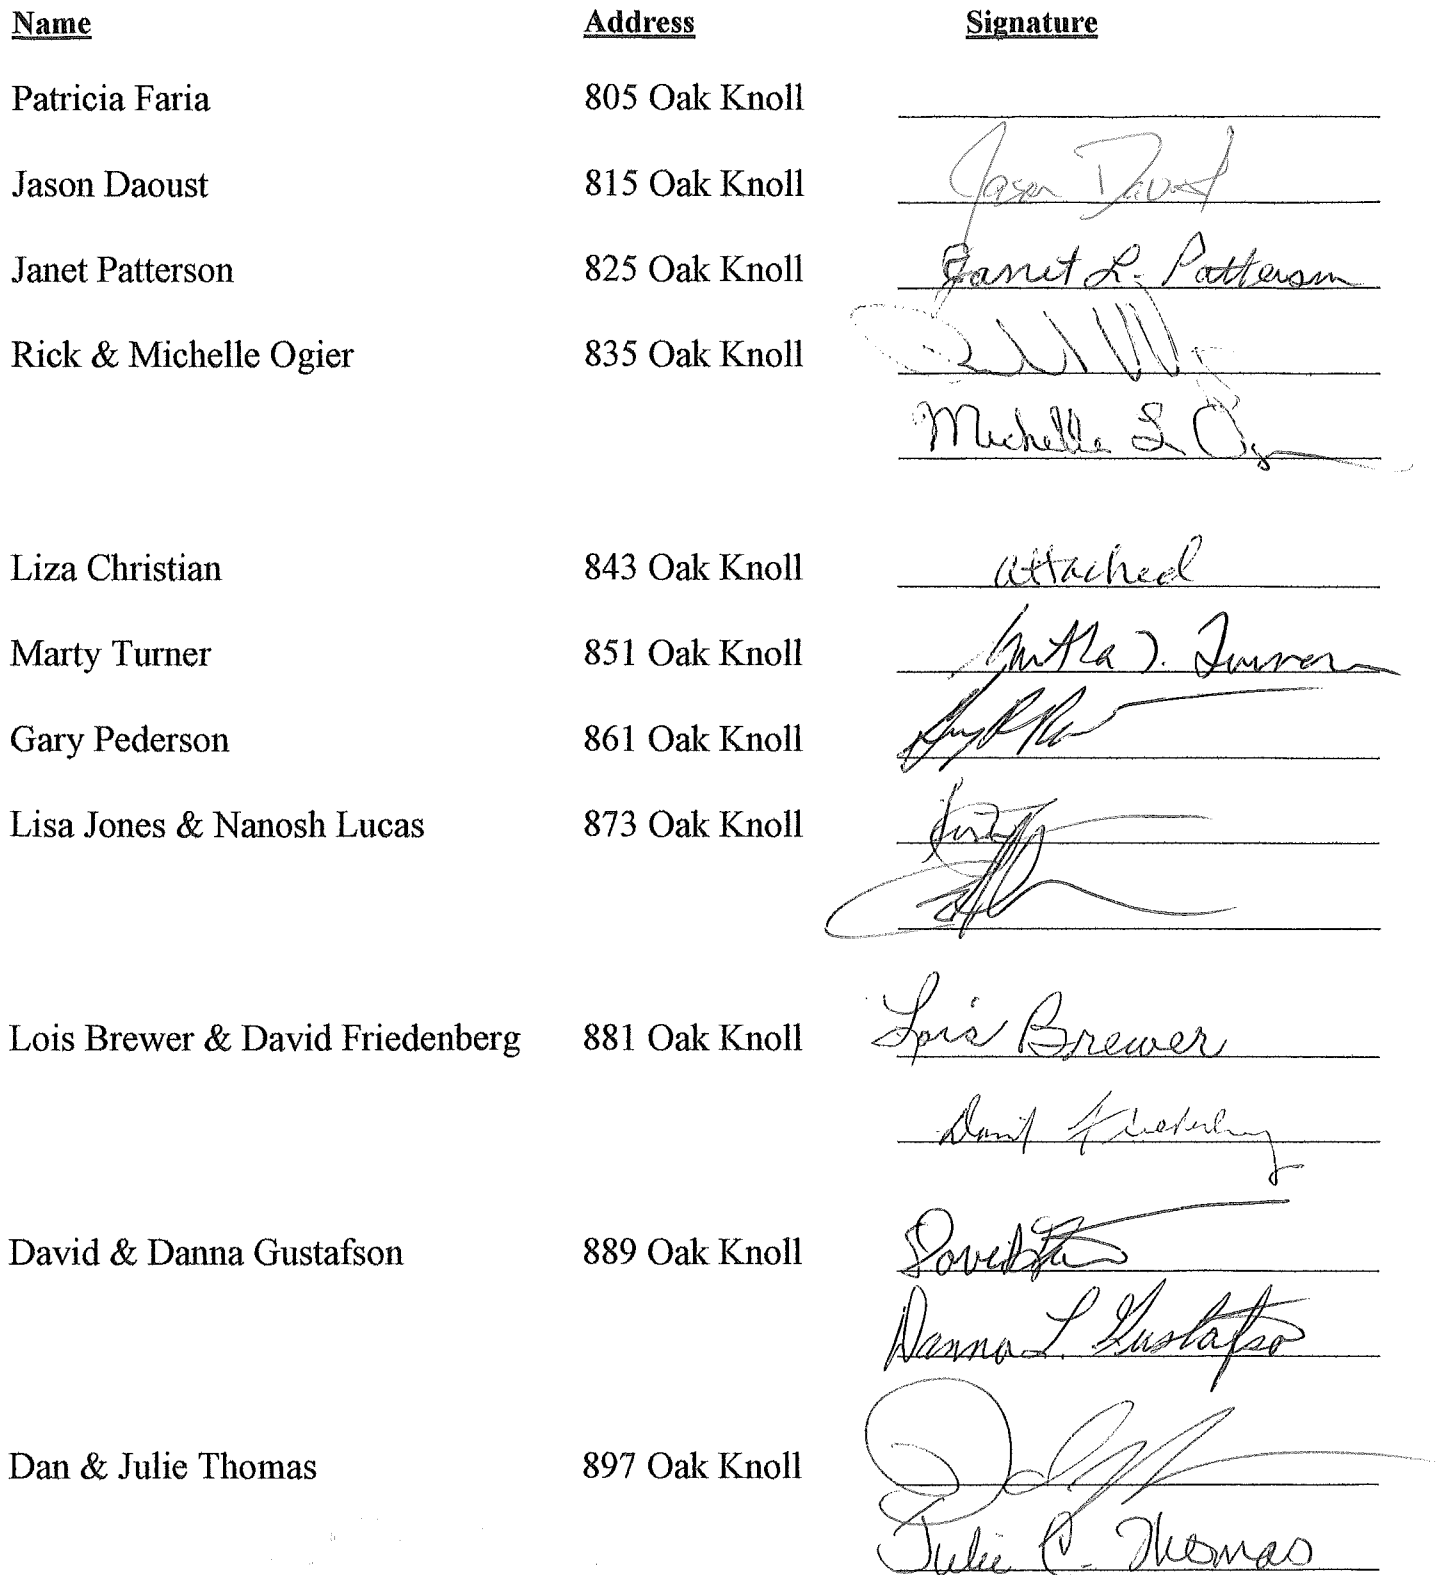 Name Address Signature
Patricia Faria 805 Oak Knoll
Jason Daoust 815 Oak Knoll Jason Daoust
Janet Patterson 825 Oak Knoll Janet L. Patterson
Rick & Michelle Ogier 835 Oak Knoll
Michelle L. Ogier
Liza Christian 843 Oak Knoll attached
Marty Turner 851 Oak Knoll Martha J. Turner
Gary Pederson 861 Oak Knoll
Lisa Jones & Nanosh Lucas 873 Oak Knoll
Lois Brewer & David Friedenberg 881 Oak Knoll Lois Brewer
David Friedenberg
David & Danna Gustafson 889 Oak Knoll David
Danna L. Gustafson
Dan & Julie Thomas 897 Oak Knoll
Julie C. Thomas